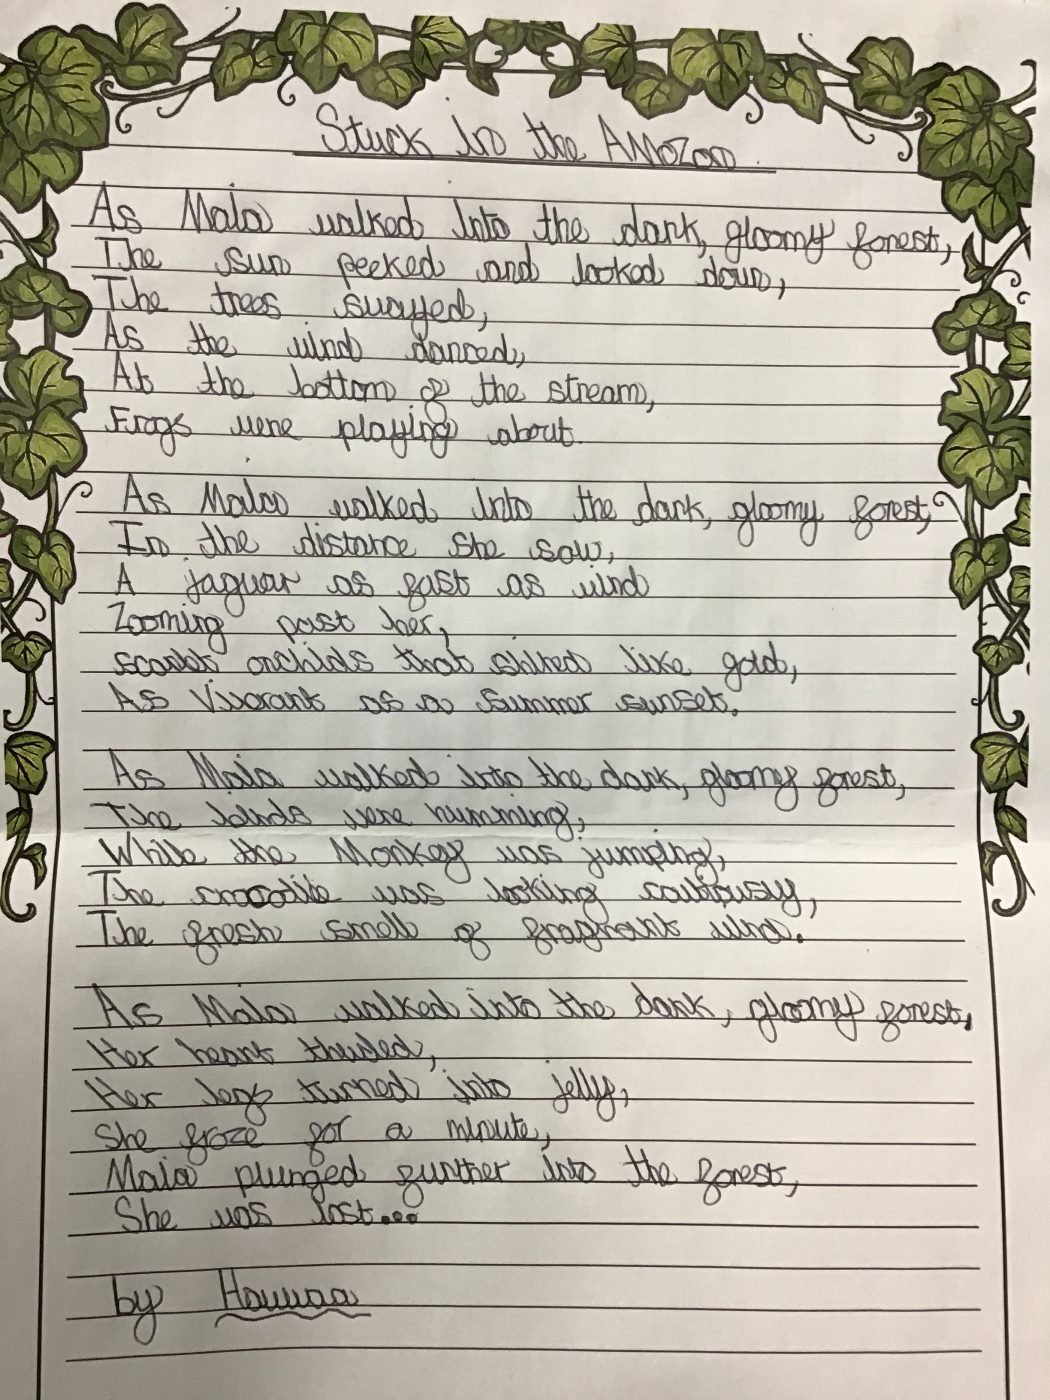 Stuck in the Amazon
As Maia walked into the dark, gloomy forest,
The sun peeked and looked down,
The trees swayed,
As the wind danced,
At the bottom of the stream,
Frogs were playing about.
As Maia walked into the dark, gloomy forest,
In the distance she saw,
A jaguar as fast as wind
Zooming past her,
orchids that shined like gold,
As Vibrant as a summer sunset.
As Maia walked into the dark, gloomy forest,
The birds were humming,
While the Monkey was jumping,
The crocodile was looking
The fresh smell of fragrant wind.
As Maia walked into the dark, gloomy forest,
Her heart thuded,
Her legs turned into jelly,
She froze for a minute,
Maia plunged further into the forest,
She was lost...
by